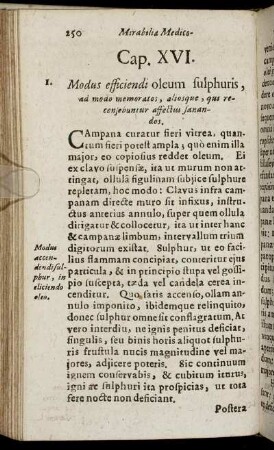 250 Mirabilia Medico-
Cap. XVI.
1. Modus efficiendi oleum sulphuris,
ad modo memoratos, aliosque, qui re-
censebuntur affectus sanan-
dos.
CAmpana curatur fieri vitrea, quan-
tum fieri potest ampla, quò enim illa
major, eo copiosius reddet oleum. Ei
ex clavo suspensæ, ita ut murum non at-
tingat, ollulâ figulinam subjice sulphure
repletam, hoc modo: Clavus infra cam-
panam directe muro sit infixus, instru-
ctus anterius annulo, super quem ollula
dirigatur & collocetur, ita ut inter hanc
& campanæ limbum, intervallum trium
digitorum existat. Sulphur, ut eo faci-
lius flammam concipiat, conteritur ejus
particula, & in principio stupa vel gossi-
pio suscepta, tæda vel candela cerea in-
cenditur. Quo, satis accenso, ollam an-
nulo imponito, ibidemque relinquito,
donec sulphur omne sit conflagratum, At
vero interdiu, ne ignis penitus deficiat,
singulis, seu binis horis aliquot sulphu-
ris frustula nucis magnitudine vel ma-
jores, adjicere poteris. Sic continuum
ignem conservabis, & cubitum iturus,
igni ac sulphuri ita prospicias, ut tota
fere nocte non deficiant.
Modus
accen-
dendi sul-
phur, in
eliciendo
oleo.
Postera